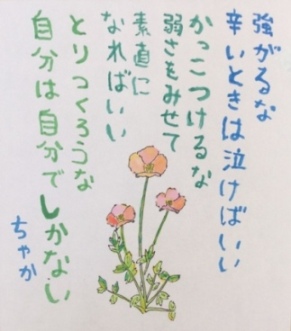 強がるな
辛いときは泣けばいい
かっこつけるな
弱さをみせて
素直に
なればいい
とりつくろうな
自分は自分でしかない
ちゃか